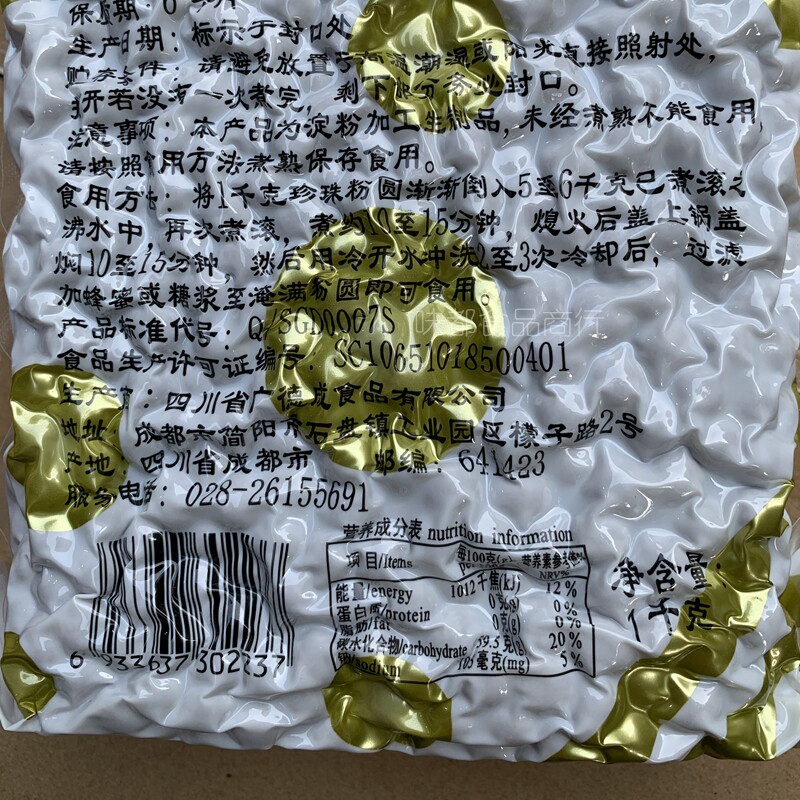 保质期：6个月
生产日期：标示于封口处
贮存条件：请避免放置于高温潮湿或阳光直接照射处，
开若没有一次煮完，剩下部分务必封口。
注意事项：本产品为淀粉加工生制品，未经煮熟不能食用，
请按照食用方法煮熟保存食用。
食用方法：将1千克珍珠粉圆渐渐倒入5至6千克已煮滚之
沸水中，再次煮滚，煮约10至15分钟，熄火后盖上锅盖
焖10至15分钟，然后用冷开水冲洗2至3次冷却后，过滤
加蜂蜜或糖浆至淹满粉圆即可食用。
产品标准代号：Q/SGD0007S
味都食品商行
食品生产许可证编号：SC10651018500401
生产商：四川省广德成食品有限公司
地址：成都市简阳市石盘镇工业园区檬子路2号
产地：四川省成都市 邮编：641423
服务电话：028-26155691
营养成分表 nutrition information
项目/Items 每100克(g) 营养素参考值%
NRV%
能量/energy 1012千焦(kJ) 12%
蛋白质/protein 0克(g) 0%
脂肪/fat 0克(g) 0%
碳水化合物/carbohydrate 59.5克(g) 20%
钠/sodium 105毫克(mg) 5%
净含量：
1千克
6 932637 302237